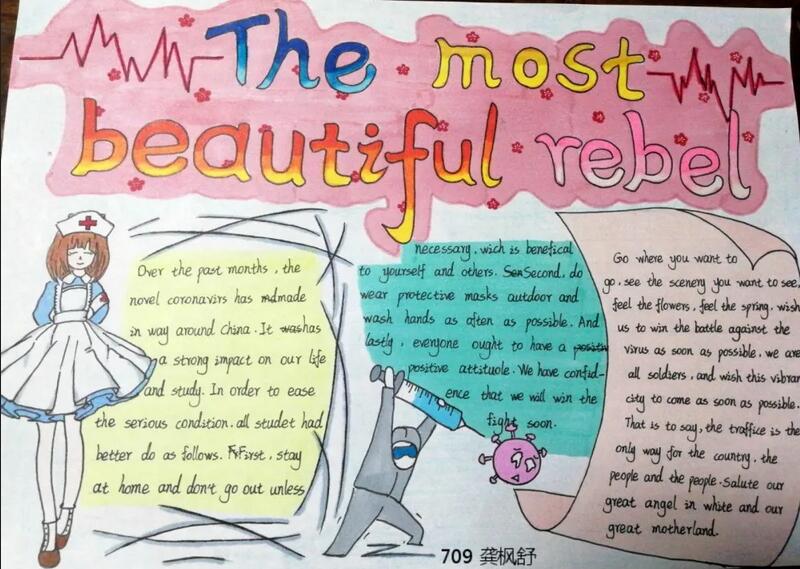 The most
beautiful rebel
Over the past months, the
novel coronavirs has made
in way around China. It has
a strong impact on our life
and study. In order to ease
the serious condition, all studet had
better do as follows. First, stay
at home and don't go out unless
necessary, wich is benefical
to yourself and others. Second, do
wear protective masks outdoor and
wash hands as often as possible. And
lastly, everyone ought to have a
positive attstuole. We have confid-
ence that we will win the
fight soon.
Go where you want to
go, see the scenery you want to see,
feel the flowers, feel the spring. wish
us to win the battle against the
virus as soon as possible, we are
all soldiers, and wish this vibran
city to come as soon as possible.
That is to say, the traffice is the
only way for the country, the
people and the people. Salute our
great angel in white and our
great motherland.
709 龚枫舒